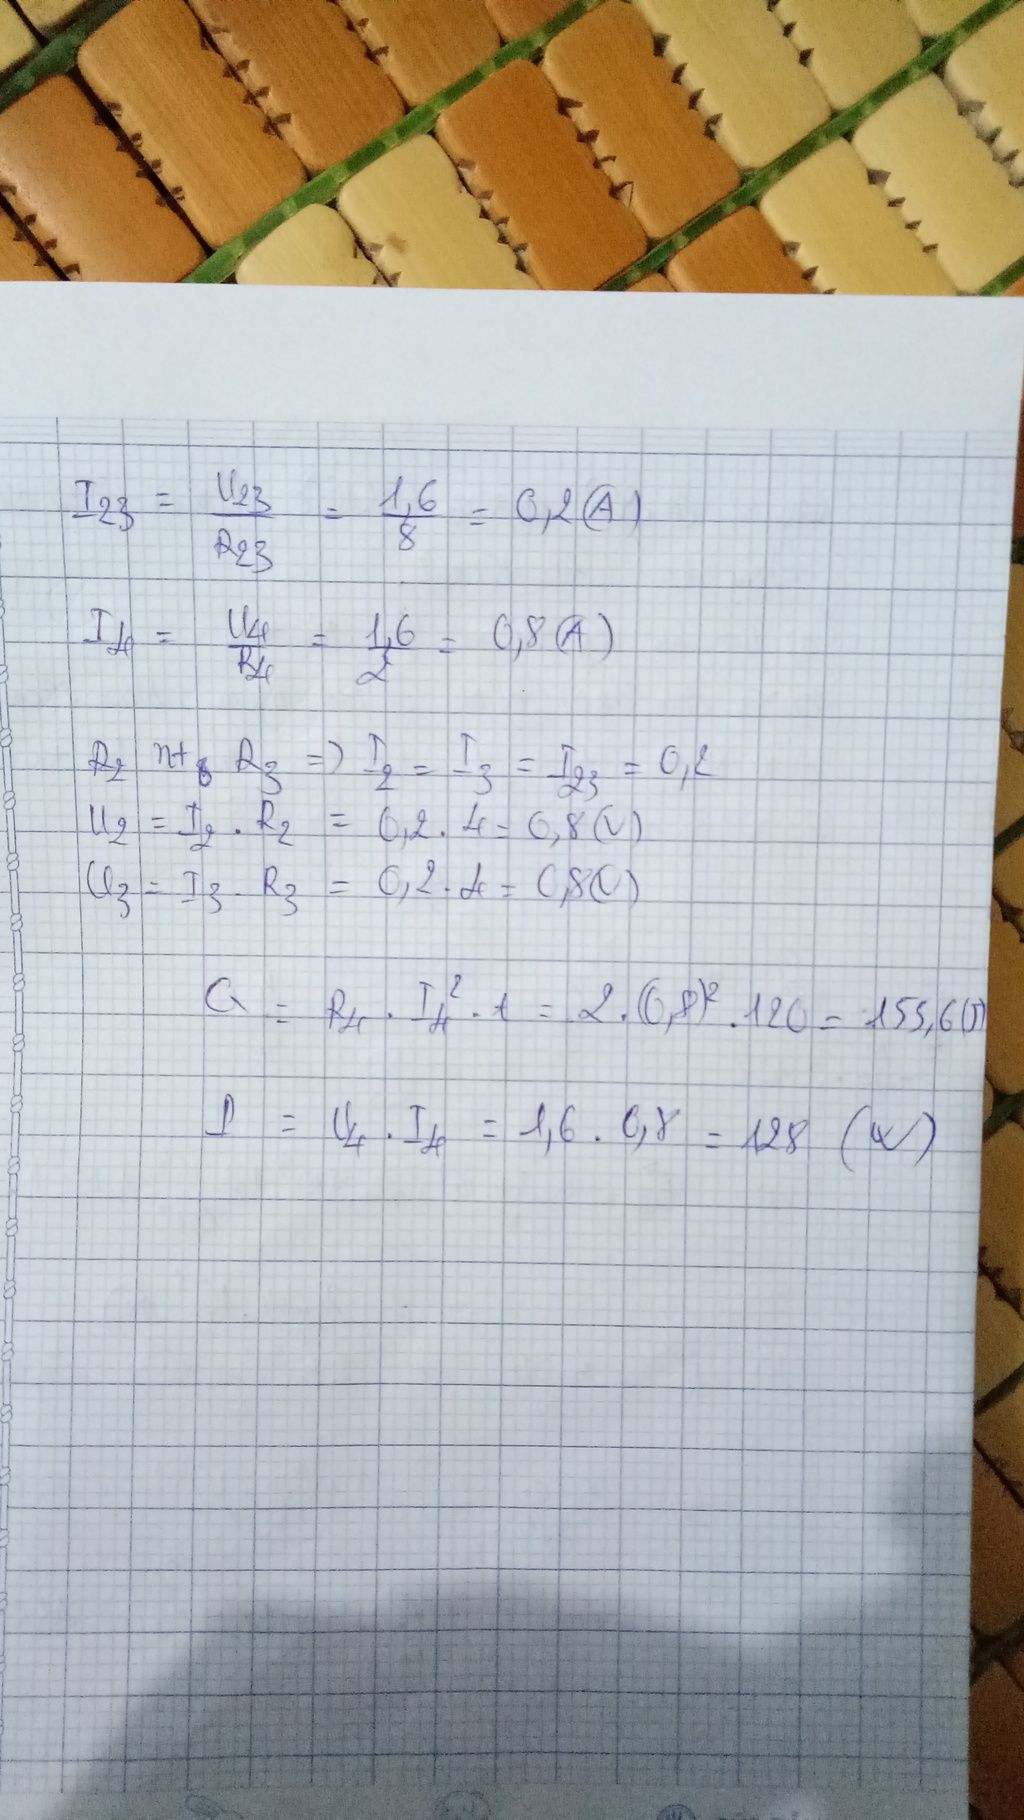 I23 = U23/R23 = 1,6/8 = 0,2(A)
I4 = U4/R4 = 1,6/2 = 0,8(A)
R2 nt R3 => I2 = I3 = I23 = 0,2
U2 = I2 . R2 = 0,2 . 4 = 0,8(V)
U3 = I3 . R3 = 0,2 . 4 = 0,8(V)
Q = R4 . I4² . t = 2 . (0,8)² . 120 = 153,6(J)
P = U4 . I4 = 1,6 . 0,8 = 128 (W)